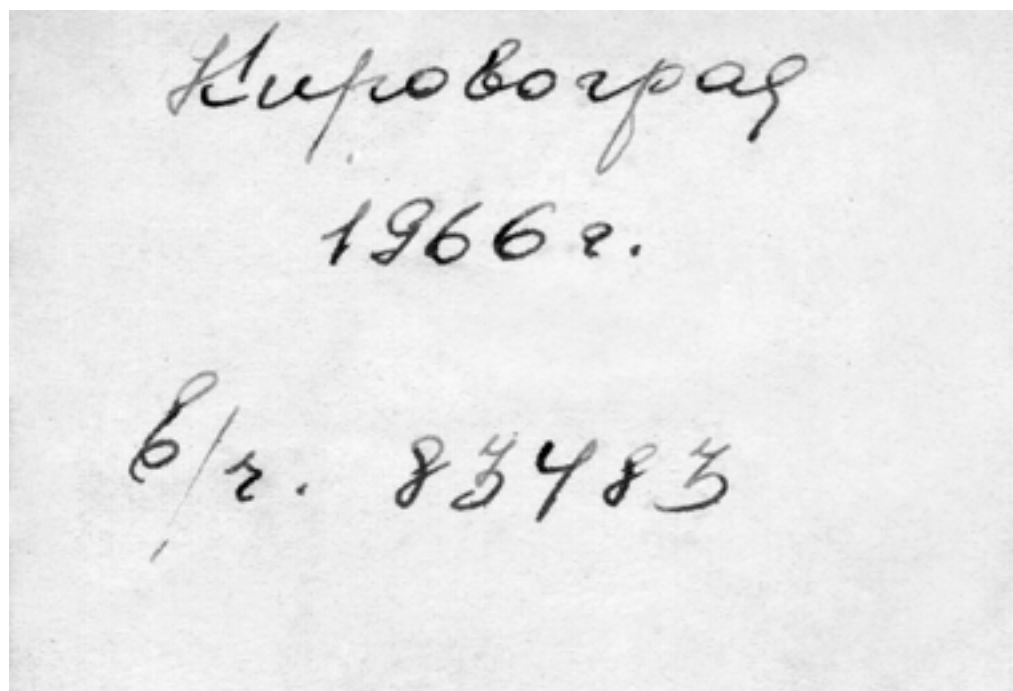 Кировоград
1966 г.
в/ч. 83483